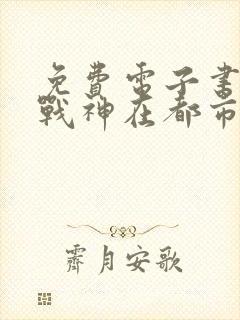 免費電子書
戰神在都市
霽月安歌